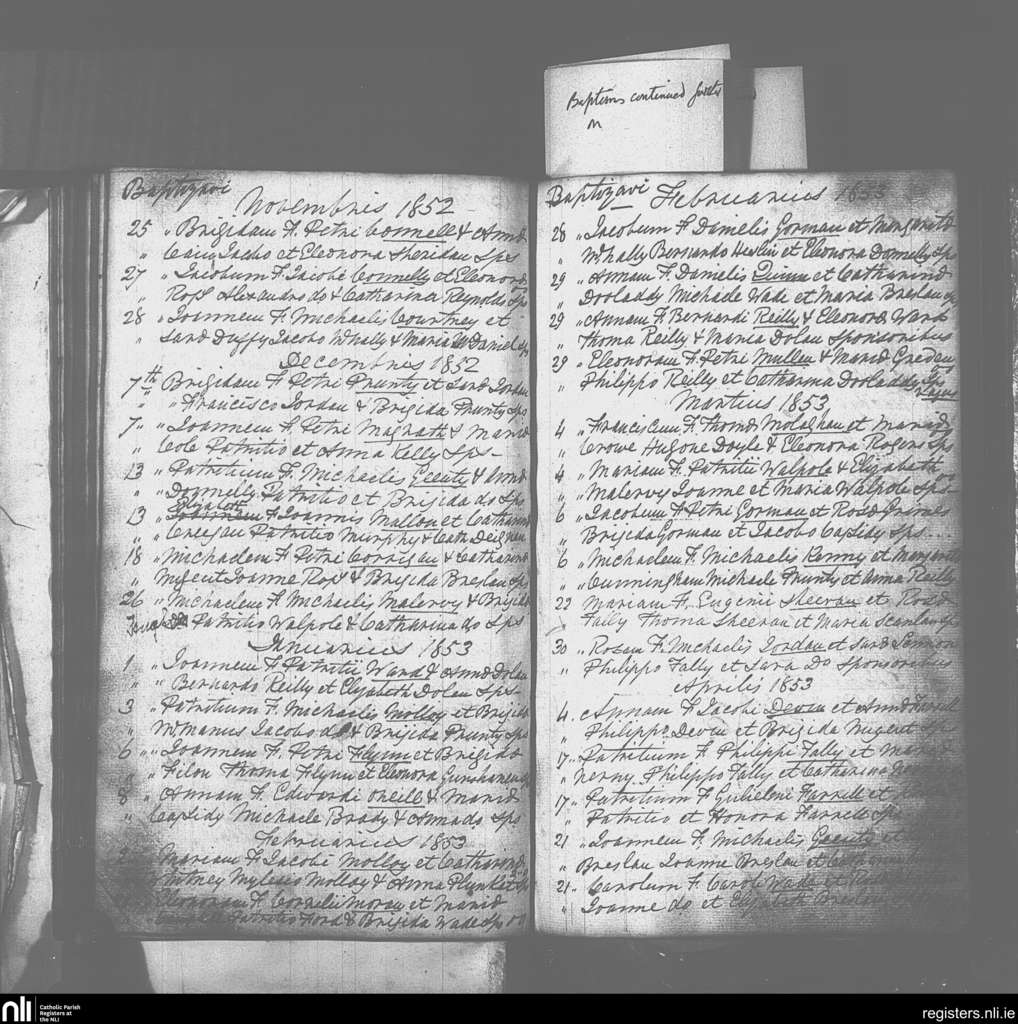 Baptisms continued further
on
Baptizavi
Novembris 1852
25 " Brigidam F. Petri Connell & Anna
" Jacobo et Eleonora Sheridan Sps
27 " Jacobum F. Jacobi Connelly et Eleonora
" Ross Alexandro do & Catharina Reynolds Sps
28 " Joannem F. Michaelis Courtney et
" Sara Duffy Jacobo Whally & Maria McDaniel Sps
Decembris 1852
7th Brigidam F. Petri Prunty et Sara Jordan
" " Francisco Jordan & Brigida Prunty Sps
7 " " Joannem F. Petri Magrath & Maria
" Cole Patritio et Anna Kelly Sps
13 " Patritium F. Michaelis Geeuty & Anna
" " Donnelly Patritio et Brigida do Sps
Elizabeth
13 " F. Joannis Mallon et Catharina
" Patritio Murphy & Cath Deignan
18 " Michaelem F. Petri Corrigan & Catharina
" Joanne Ross & Brigida Breslau Sps
26 " Michaelem F. Michaelis Malervy & Brigida
Patritio Walpole & Catharina do Sps
Januarius 1853
1 " Joannem F. Patritii Ward & Anna Dolan
" " Bernardo Reilly et Elizabeth Dolan Sps
3 " Patritium F. Michaelis Molloy et Brigida
" McManus Jacobo do & Brigida Prunty Sps
6 " " Joannem F. Petri Flynn et Brigida
" Thoma Flynn et Eleonora
8 " Annam F. Edwardi Oneill & Maria
" Cassidy Michaele Brady & Anna do Sps
Februarius 1853
Mariam F. Jacobi Molloy et Catharina
Whitney Mylesio Molloy & Anna Plunket Sps
Eleonoram F. Cornelii Moran et Maria
Patritio Ford & Brigida Wade Sps
Baptizavi Februarius 1853
28 " Jacobum F. Danielis Gorman et Margarita
" McNally Bernardo Heslin et Eleonora Donnelly Sps
29 " Annam F. Danielis Quinn et Catharina
" Dooladdy Michaele Wade et Maria Breslau Sps
29 " Annam F. Bernardi Reilly & Eleonora Ward
" Thoma Reilly & Maria Dolan Sponsoribus
29 " Eleonoram F. Petri Mullen & Maria
" Philippo Reilly et Catharina Dooladdy Sps
Martius 1853
4 " Franciscum F. Thoma Molaghan et Maria
" Crowe Hugone Doyle & Eleonora Rogers Sps
4 " Mariam F. Patritii Walpole & Elizabeth
" Malervy Joanne et Maria Walpole Sps
6 " Jacobum F. Petri Gorman et Rosa Grimes
" Brigida Gorman et Jacobo Cassidy Sps
6 " Michaelem F. Michaelis Kenny et Margarita
" Cunningham Michaele Prunty et Anna Reilly
22 Mariam F. Eugenii Sheeran et Rosa
" Fally Thoma Sheeran et Maria Scanlan Sps
30 " Rosam F. Michaelis Jordan et Sara Lennon
" Philippo Fally et Sara Do Sponsoribus
Aprilis 1853
4. Annam F. Jacobi Deven et Anna
" Philippo Deven et Brigida Sps
17 " Patritium F. Philippi Fally et Maria
" Nerny Philippo Fally et Catharina
17 " Patritium F. Gulielmi Farrell et
" Patritio et Honora Farrell Sps
21 " Joannem F. Michaelis Geeuty et
" Breslau Joanne Breslau et
21 " Carolum F. Caroli Wade et
" Joanne do et Elizabeth Breslau
nli
Catholic Parish
Registers at
the NLI
registers.nli.ie